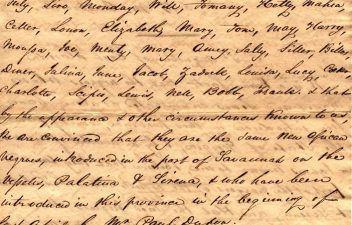 July, Sivo, Monday, Will, Tomany, Hetty, Mahia,
Catter, Lowon, Elizabeth, Mary, Tom, May, Harry
Joe, Menty, Mary, Amey, Saly, Siller, Billy
Diner, Salina, Jane, Jacob, Louisa, Lucy,
Charlotte, Scipio, Lewis, Nell, Bobb, & that
by the appearance & other circumstances known to us,
we are convinced that they are the same new African
negroes, introduced in the port of Savannah on the
Vessels, Palatina & Sirena, & who have been
introduced in this province in the beginning of
by Mr. Paul